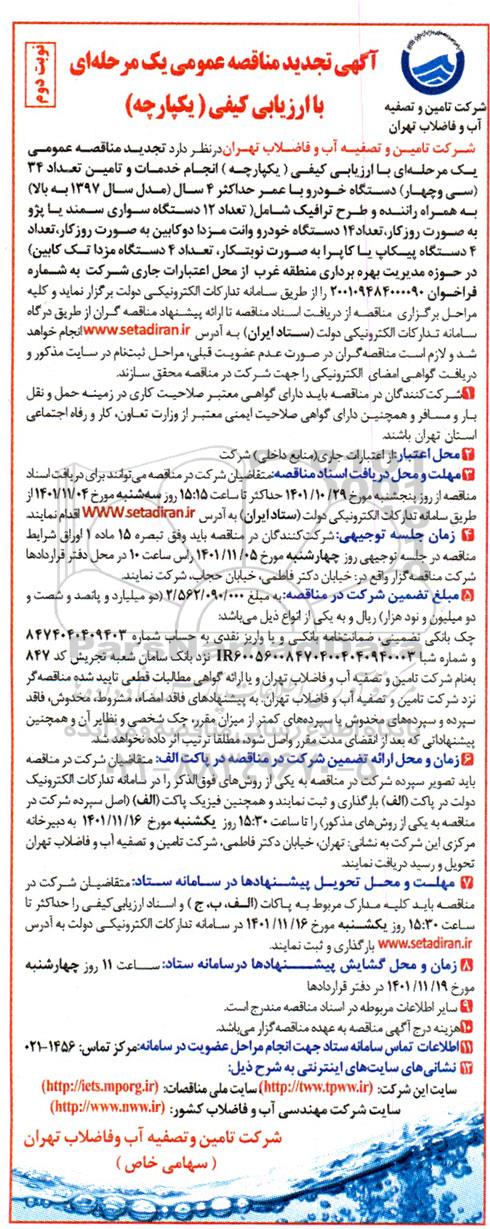 نوبت دوم
آگهی تجدید مناقصه عمومی یک مرحله‌ای
با ارزیابی کیفی (یکپارچه)
شرکت تامین و تصفیه
آب و فاضلاب تهران
شرکت تامیـن و تصفیـه آب و فاضـلاب تهـران درنظر دارد تجدیـد مناقصه عمومی
یـک مرحلـه‌ای بـا ارزیابـی کیفـی ( یکپارچـه ) انجام خدمـات و تامیـن تعـداد ۳۴
(سـی وچهـار) دستگاه خودرو با عمر حداکثر ۴ سال (مـدل سال ۱۳۹۷ بـه بالا)
به همراه راننده و طرح ترافیک شامل( تعداد ۱۲ دستگاه سواری سمند یا پژو
به صورت روزکار،تعداد۱۴ دستگاه خودرو وانت مـزدا دوکابین به صورت روزکار،تعداد
۴ دستگاه پیـکاپ یـا کاپـرا به صـورت نوبتـکار، تعـداد ۴ دستگاه مزدا تـک کابین)
در حـوزه مدیریت بهره برداری منطقه غرب از محل اعتبارات جاری شرکت به شماره
فراخـوان ۲۰۰۱۰۹۴۸۴۰۰۰۰۹۰ را از طریق سامانه تدارکات الکترونیکـی دولت برگزار نماید و کلیه
مراحـل برگـزاری مناقصه از دریافت اسناد مناقصه تا ارائه پیشنهاد مناقصه گران از طریق درگاه
سامانه تـدارکات الکترونیکی دولت (سـتاد ایران) به آدرس www.setadiran.ir انجام خواهد
شـد و لازم است مناقصه‌گـران در صورت عـدم عضویـت قبلی، مراحـل ثبت‌نام در سایت مذکور و
دریافت گواهـی امضای الکترونیکی را جهت شرکت در مناقصه محقق سازند.
۱ شرکت‌کنندگان در مناقصه باید دارای گواهی معتبـر صلاحیـت کاری در زمینـه حمـل و نقل
بـار و مسافر و همچنیـن دارای گواهی صلاحیـت ایمنی معتبـر از وزارت تعـاون، کار و رفاه اجتماعی
استان تهران باشند.
۲ محل اعتبار: از اعتبارات جاری(منابع داخلی) شرکت
۳ مهلت و محل دریافت اسناد مناقصه:متقاضیان شرکت در مناقصه می‌توانند برای دریافت اسناد
مناقصه از روز پنجشنبه مورخ ۱۴۰۱/۱۰/۲۹ حداکثر تا ساعت ۱۵:۱۵ روز سه‌شنبه مورخ ۱۴۰۱/۱۱/۰۴ از
طریق سامانه تدارکات الکترونیکی دولت (ستاد ایران) به آدرس www.setadiran.ir اقدام نمایند.
۴ زمان جلسه توجیهی: شرکت‌کنندگان در مناقصه باید وفق تبصره ۱۵ ماده ۱ اوراق شرایط
مناقصه در جلسه توجیهی روز چهارشنبه مورخ ۱۴۰۱/۱۱/۰۵ راس ساعت ۱۰ در محل دفتر قراردادها
شرکت مناقصه‌گزار واقع در: خیابان دکتر فاطمی، خیابان حجاب، شرکت نمایند.
۵ مبلغ تضمین شرکت در مناقصه: به مبلغ ۲/۵۶۲/۰۹۰/۰۰۰ (دو میلیارد و پانصد و شصت و
دو میلیون و نود هزار) ریال و به یکی از انواع ذیل می‌باشد:
چک بانکی تضمینی، ضمانت‌نامه بانکـی و یا واریـز نقدی به حساب شماره ۸۴۷۴۰۴۰۴۰۹۴۰۳
و شماره شبا IR۶۰۰۵۶۰۰۸۴۷۰۴۰۰۴۰۴۰۹۴۰۰۳ نزد بانک سامان شعبه تجریش کد ۸۴۷
به‌نام شرکت تامین و تصفیه آب و فاضلاب تهران و یا ارائه گواهی مطالبات قطعی تایید شده مناقصه‌گر
نزد شرکت تامین و تصفیه آب و فاضلاب تهران. به پیشنهادهای فاقد امضاء، مشروط، مخدوش، فاقد
سپرده و سپرده‌های مخدوش یا سپرده‌های کمتر از میزان مقرر، چک شخصی و نظایر آن و همچنین
پیشنهاداتی که بعد از انقضای مدت مقرر واصل شود، مطلقا ترتیب اثر داده نخواهد شد.
۶ زمان و محل ارائه تضمین شرکت در مناقصه در پاکت الف: متقاضیان شرکت در مناقصه
باید تصویر سپرده شرکت در مناقصه به یکی از روش‌های فوق‌الذکر را در سامانه تدارکات الکترونیک
دولت در پاکت (الف) بارگذاری و ثبت نمایند و همچنین فیزیک پاکت (الف) (اصل سپرده شرکت در
مناقصه به یکی از روش‌های مذکور) را تا ساعت ۱۵:۳۰ روز یکشنبه مورخ ۱۴۰۱/۱۱/۱۶ به دبیرخانه
مرکزی این شرکت به نشانی: تهران، خیابان دکتر فاطمی، شرکت تامین و تصفیه آب و فاضلاب تهران
تحویل و رسید دریافت نمایند.
۷ مهلـت و محـل تحویـل پیشـنهادها در سـامانه سـتاد: متقاضیـان شـرکت در
مناقصـه بایـد کلیـه مـدارک مربـوط بـه پـاکات (الـف، ب، ج ) و اسـناد ارزیابی‌کیفـی را حداکثر تا
ساعت ۱۵:۳۰ روز یکشـنبه مورخ ۱۴۰۱/۱۱/۱۶ در سامانه تدارکات الکترونیکـی دولت به آدرس
www.setadiran.ir بارگذاری و ثبت نمایند.
۸ زمان و محل گشایش پیشـــنهادها درسامانه ستاد: ساعت ۱۱ روز چهارشنبه
مورخ ۱۴۰۱/۱۱/۱۹ در دفتر قراردادها
۹ سایر اطلاعات مربوطه در اسناد مناقصه مندرج است.
۱۰ هزینه درج آگهی مناقصه به عهده مناقصه‌گزار می‌باشد.
۱۱ اطلاعات تماس سامانه ستاد جهت انجام مراحل عضویت در سامانه:مرکز تماس: ۱۴۵۶-۰۲۱
۱۲ نشانی‌های سایت‌های اینترنتی به شرح ذیل:
سایت این شرکت: (http://tww.tpww.ir)، سایت ملی مناقصات: (http://iets.mporg.ir)
سایت شرکت مهندسی آب و فاضلاب کشور: (http://www.nww.ir)
شرکت تامین وتصفیه آب وفاضلاب تهران
( سهامی خاص )